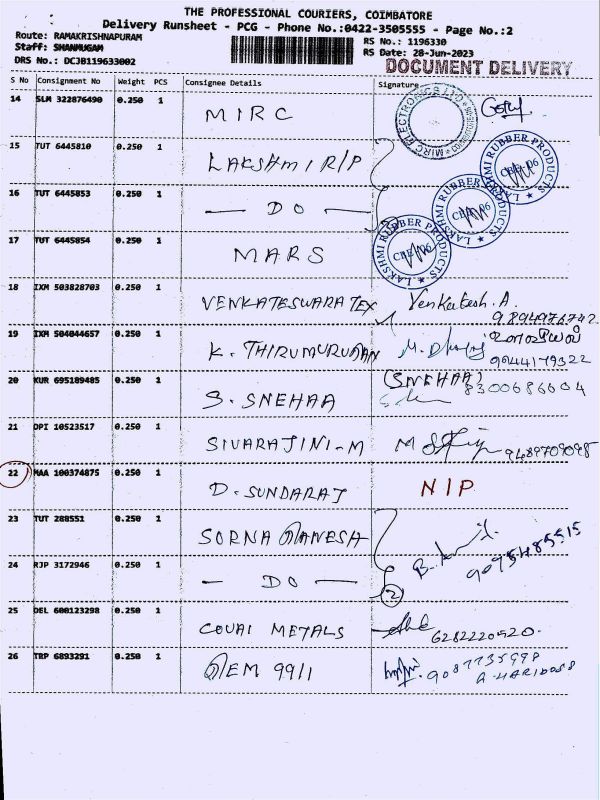 THE PROFESSIONAL COURIERS, COIMBATORE
Delivery Runsheet - PCG - Phone No.:0422-3505555 - Page No.:2
Route: RAMAKRISHNAPURAM
RS No.: 1196330
Staff: SHANMUGAM
RS Date: 28-Jun-2023
DRS No.: DCJB119633002
DOCUMENT DELIVERY
S No Consignment No Weight PCS Consignee Details Signature
14 SLM 322876490 0.250 1 MIRC
MIRC ELECTRONICS LTD
15 TUT 6445810 0.250 1 LAKSHMI R/P
LAKSHMI RUBBER PRODUCTS CBE-06
16 TUT 6445853 0.250 1 — DO —
LAKSHMI RUBBER PRODUCTS CBE-06
17 TUT 6445854 0.250 1 MARS
LAKSHMI RUBBER PRODUCTS CBE-06
18 IXM 503828703 0.250 1 VENKATESWARA TEX Venkatesh. A.
9894976742
19 IXM 504044657 0.250 1 K. THIRUMURUGAN
9944179322
20 KUR 695189485 0.250 1 S. SNEHAA (SNEHAA) 8300686604
21 DPI 10523517 0.250 1 SIVARAJINI-M
9489709098
22 MAA 100374875 0.250 1 D. SUNDARAJ NIP
23 TUT 288551 0.250 1 SORNA GANESH
9095485515
24 RJP 3172946 0.250 1 — DO — 2
25 DEL 600123298 0.250 1 COVAI METALS 6282220520.
26 TRP 6893291 0.250 1 GEM 9911 9087735998
A. HARIDOSS